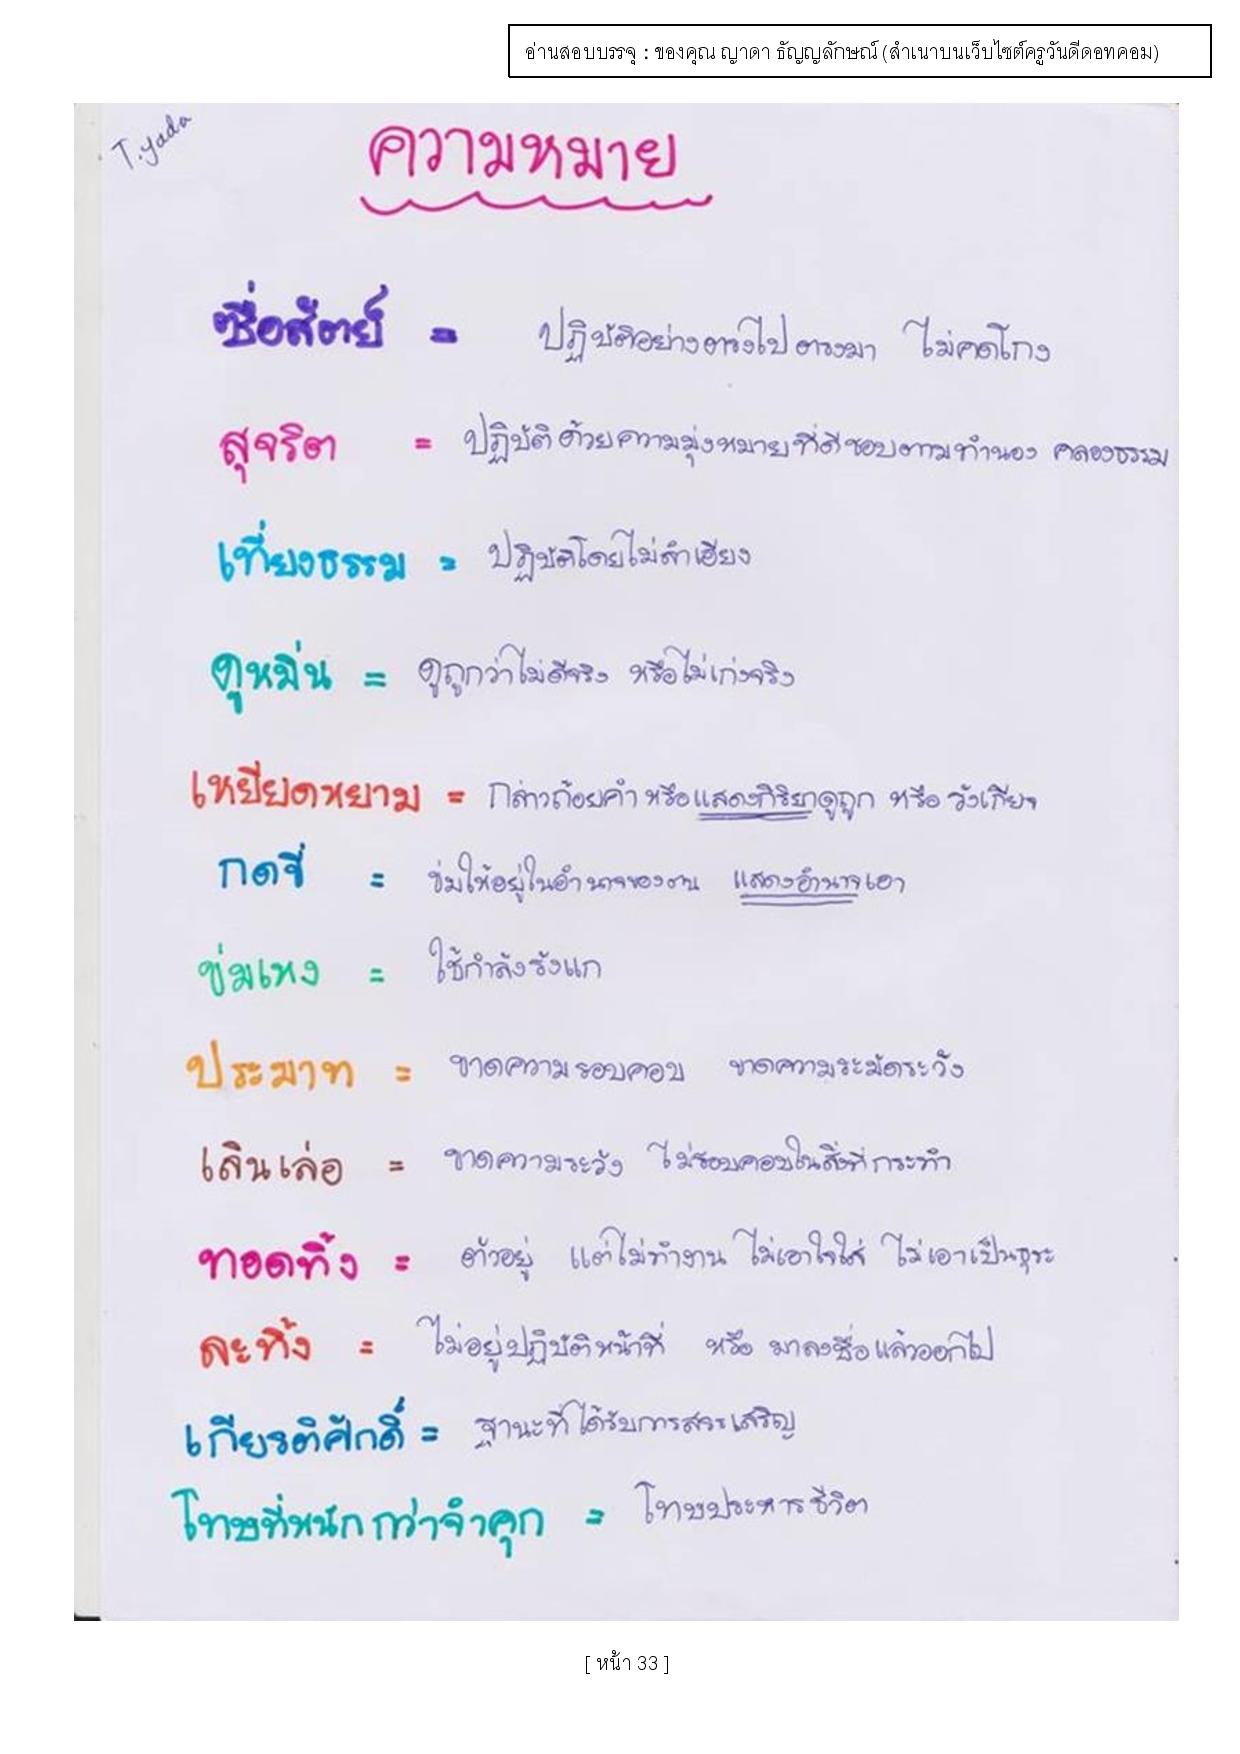 อ่านสอบบรรจุ : ของคุณ ญาดา ธัญญลักษณ์ (สำเนาบนเว็บไซต์ครูวันดีดอทคอม)
T.yada
ความหมาย
ซื่อสัตย์ = ปฏิบัติอย่างตรงไปตรงมา ไม่คดโกง
สุจริต = ปฏิบัติด้วยความมุ่งหมายที่ดีชอบตามทำนอง คลองธรรม
เที่ยงธรรม = ปฏิบัติโดยไม่ลำเอียง
ดูหมิ่น = ดูถูกว่าไม่ดีจริง หรือไม่เก่งจริง
เหยียดหยาม = กล่าวถ้อยคำ หรือแสดงกิริยาดูถูก หรือ รังเกียจ
กดขี่ = ข่มให้อยู่ในอำนาจของตน แสดงอำนาจเอา
ข่มเหง = ใช้กำลังรังแก
ประมาท = ขาดความรอบคอบ ขาดความระมัดระวัง
เลินเล่อ = ขาดความระวัง ไม่รอบคอบในสิ่งที่กระทำ
ทอดทิ้ง = ตัวอยู่ แต่ไม่ทำงาน ไม่เอาใจใส่ ไม่เอาเป็นธุระ
ละทิ้ง = ไม่อยู่ปฏิบัติหน้าที่ หรือ มาลงชื่อแล้วออกไป
เกียรติศักดิ์ = ฐานะที่ได้รับการสรรเสริญ
โทษที่หนักกว่าจำคุก = โทษประหารชีวิต
[ หน้า 33 ]